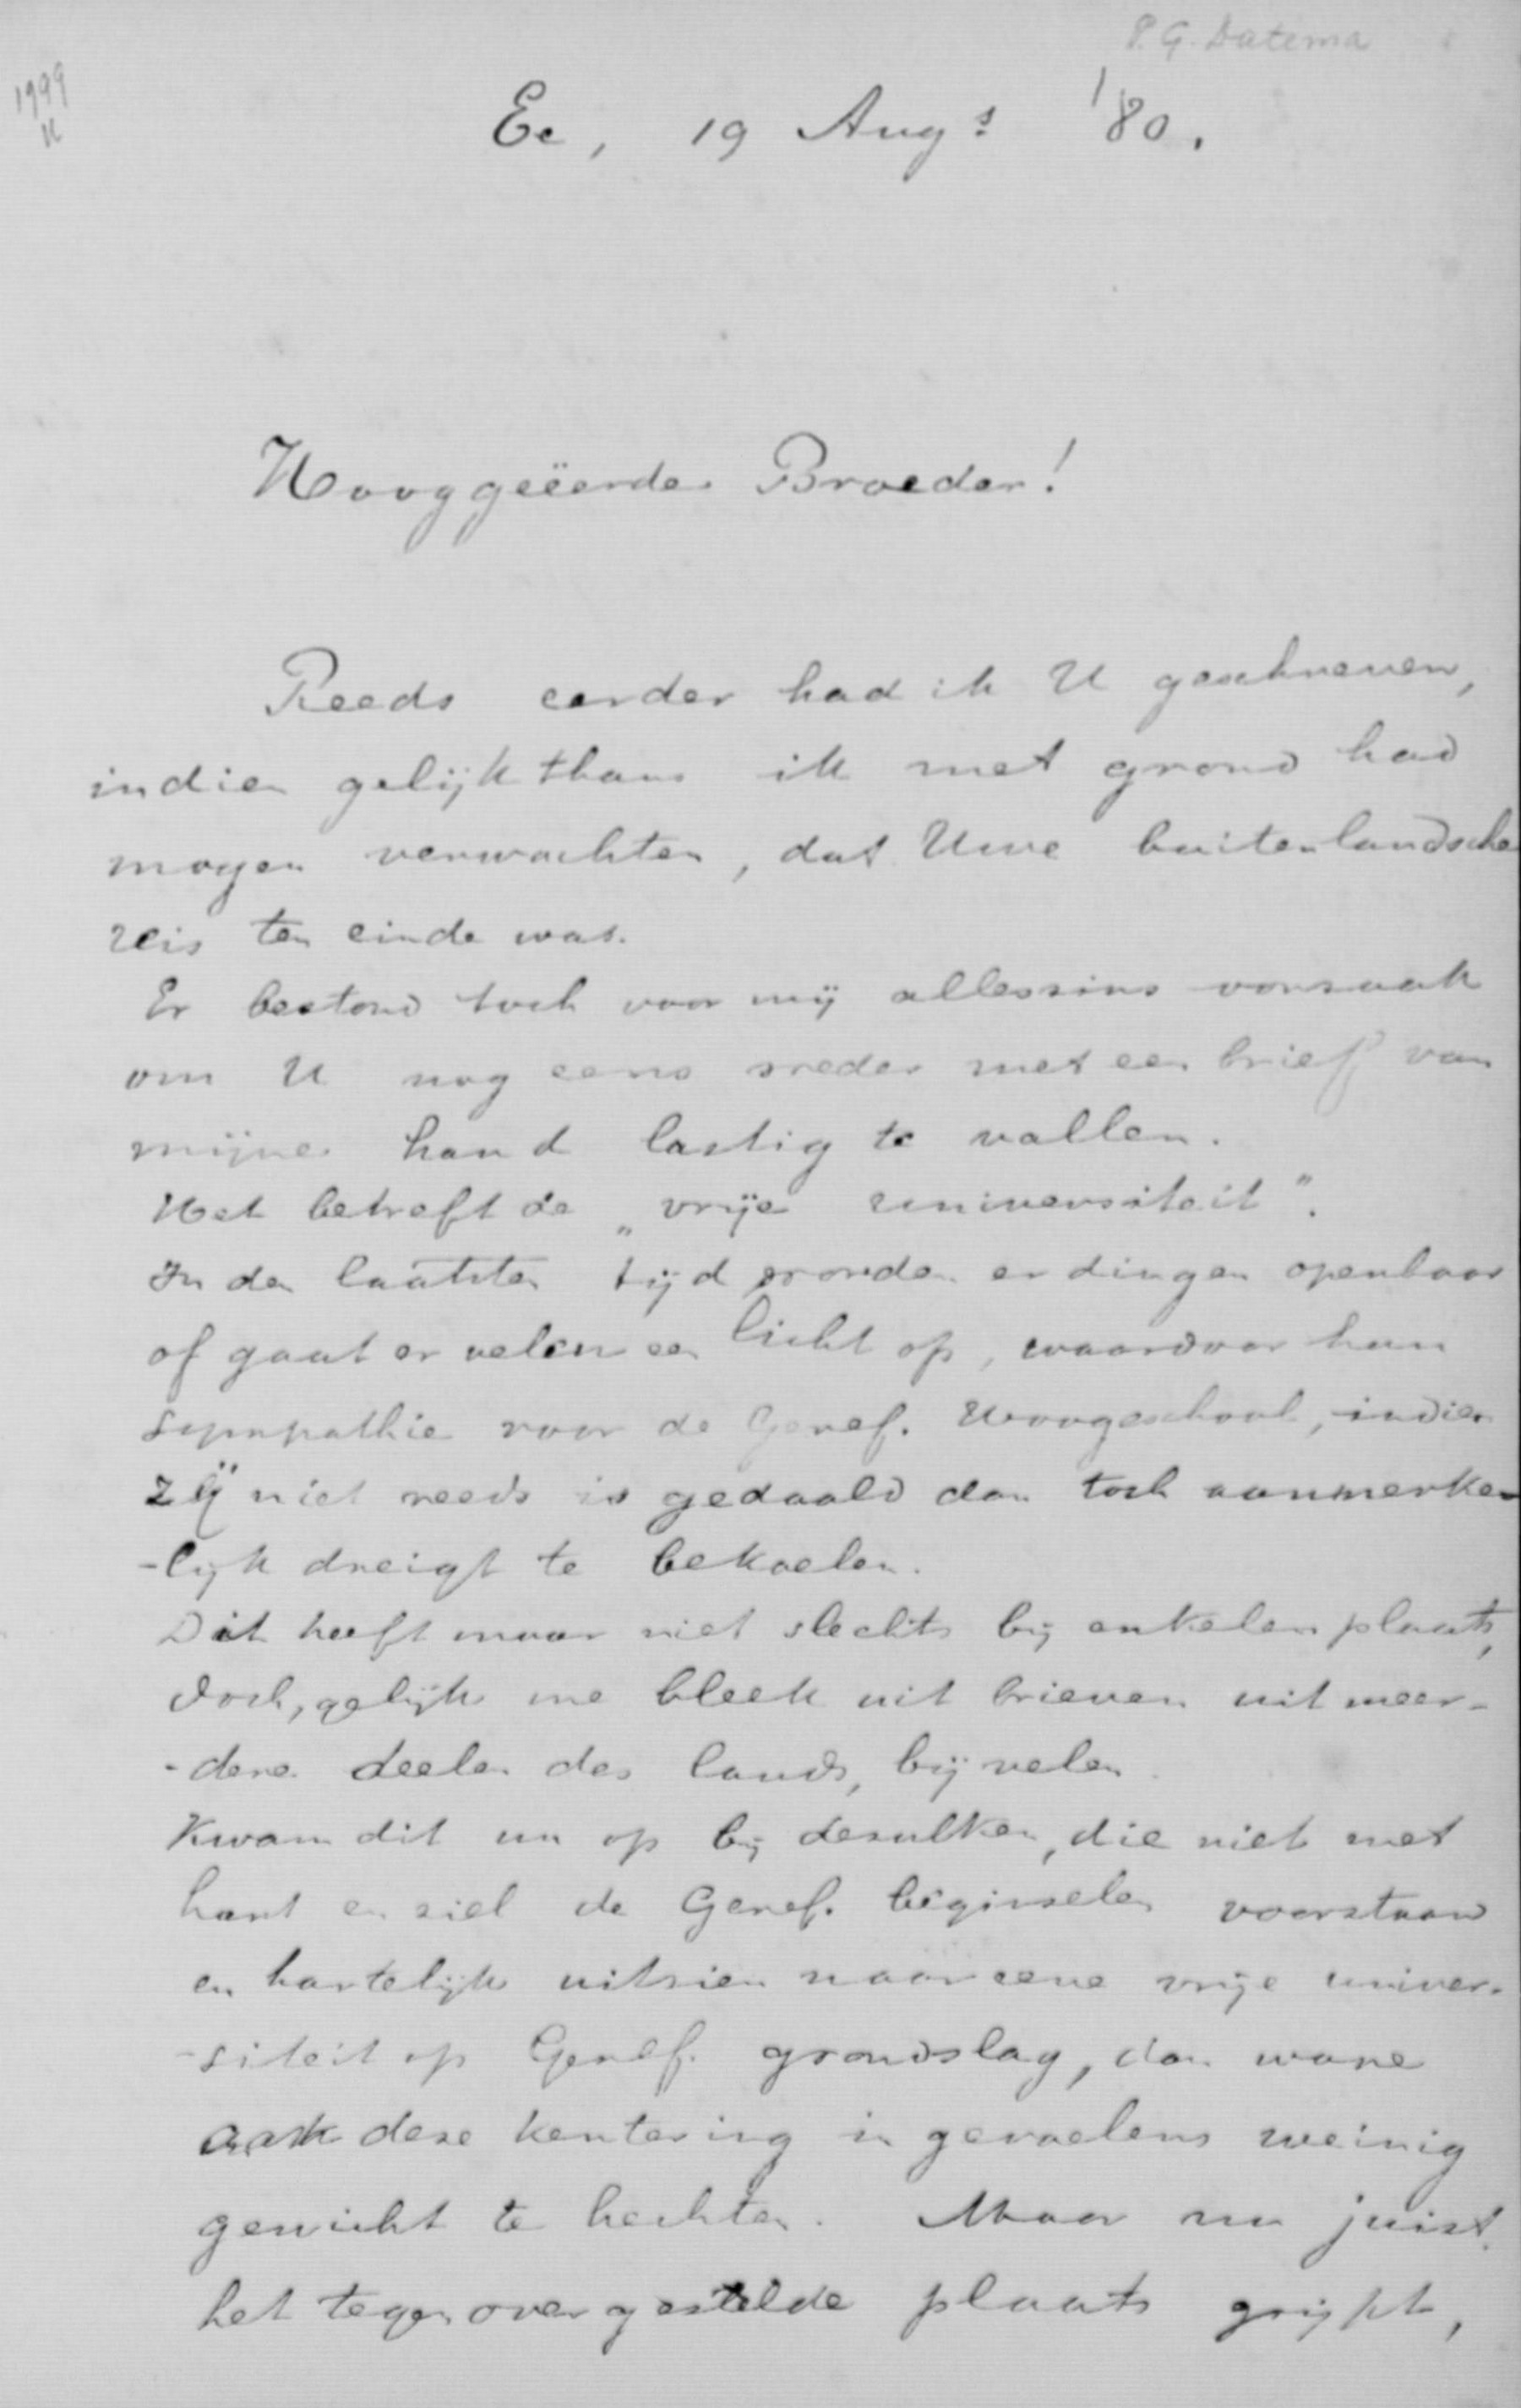 P. G. Datema
1999
Ee, 19 Augs '80.
Hooggeëerde Broeder!
Reeds eerder had ik U geschreven,
indien gelijk thans ik met grond had
mogen verwachten, dat Uwe buitenlandsche
reis ten einde was.
Er bestond toch voor mij alleszins oorzaak
om U nog eens weder met een brief van
mijne hand lastig te vallen.
Het betreft de „vrije universiteit".
In den laatsten tijd worden er dingen openbaar
of gaat er velen een licht op, waardoor hun
sympathie voor de Geref. Hoogeschool, indien
zij niet reeds is gedaald dan toch aanmerke-
-lijk dreigt te bekoelen.
Dit heeft maar niet slechts bij enkelen plaats,
doch, gelijk me bleek uit brieven uit meer-
-dere deelen des lands, bij velen.
Kwam dit nu op bij dezulken, die niet met
hart en ziel de Geref. beginselen voorstaan
en hartelijk uitzien naar eene vrije univer-
-siteit op Geref. grondslag, dan ware
aan deze kentering in gevoelens weinig
gewicht te hechten. Maar nu juist
het tegenovergestelde plaats grijpt,